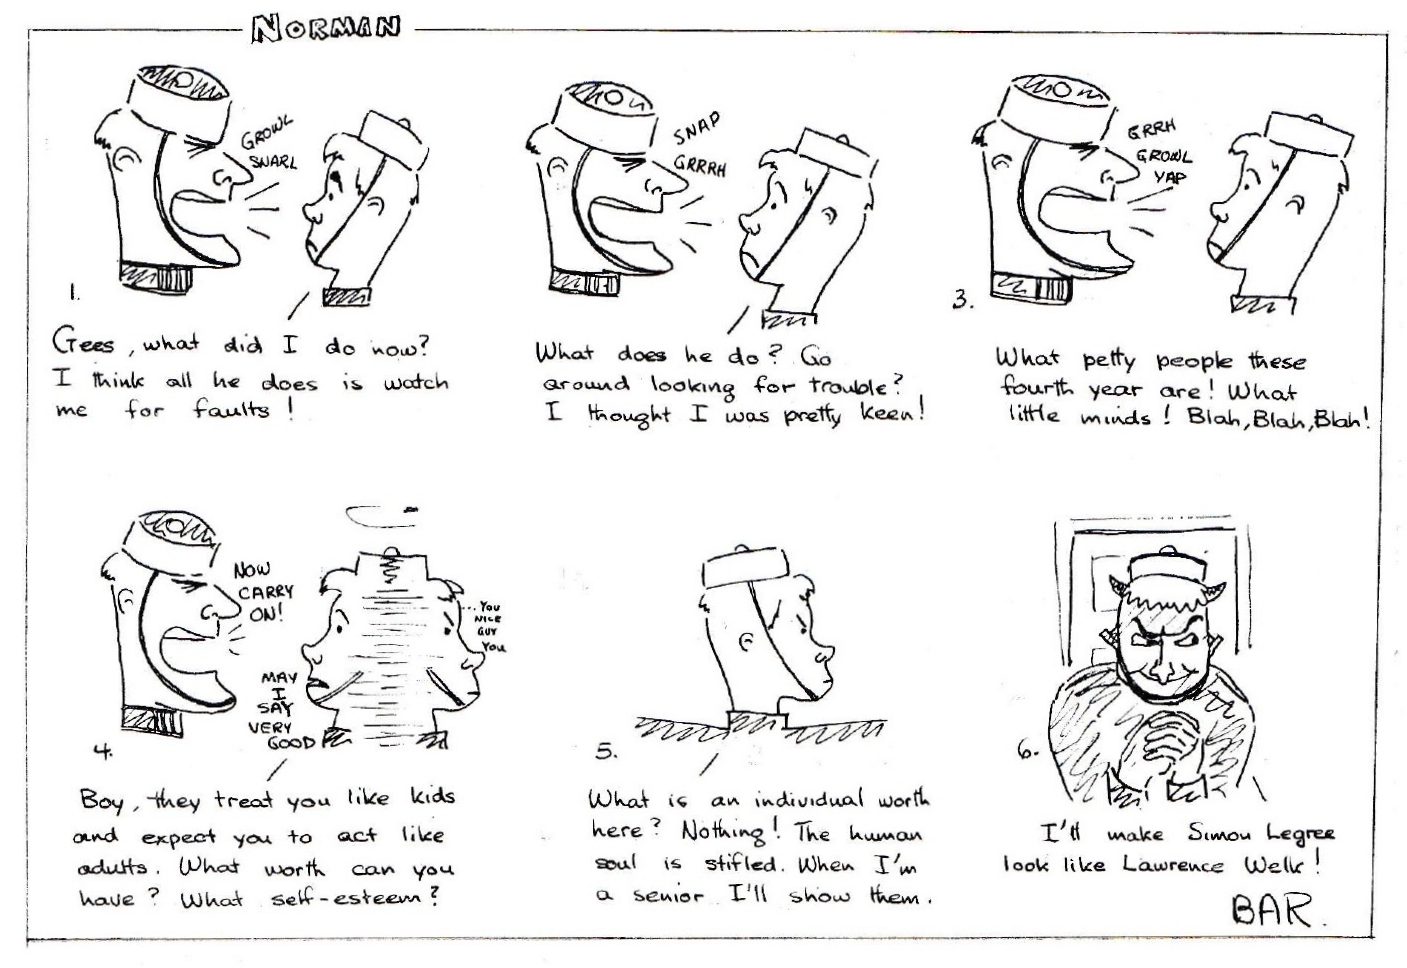 NORMAN
GROWL
SNARL
1.
Gees, what did I do now?
I think all he does is watch
me for faults!
SNAP
GRRRH
What does he do? Go
around looking for trouble?
I thought I was pretty keen!
GRRH
GROWL
YAP
3.
What petty people these
fourth year are! What
little minds! Blah, Blah, Blah!
NOW
CARRY
ON!
MAY
I
SAY
VERY
GOOD
...YOU
NICE
GUY
YOU
4.
Boy, they treat you like kids
and expect you to act like
adults. What worth can you
have? What self-esteem?
5.
What is an individual worth
here? Nothing! The human
soul is stifled. When I'm
a senior I'll show them.
6.
I'll make Simou Legree
look like Lawrence Welk!
BAR.